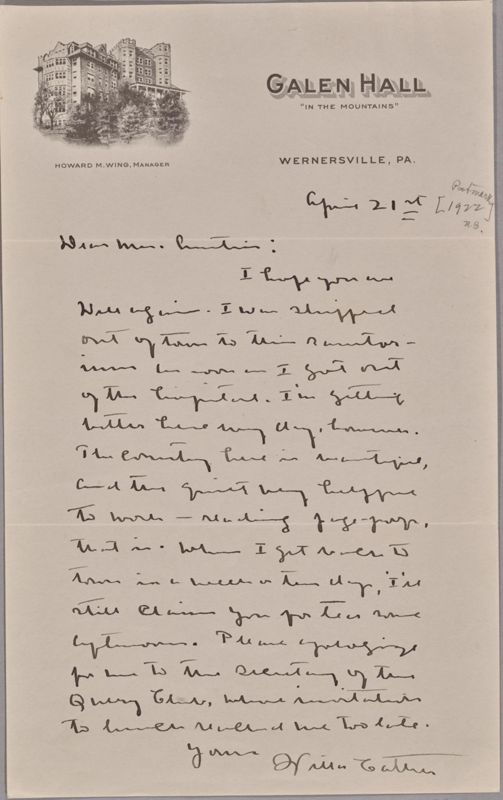 GALEN HALL
"IN THE MOUNTAINS"
HOWARD M. WING, MANAGER
WERNERSVILLE, PA.
April 21st
[Postmark
1922
Dear Mrs. Austin:
I hope you are
well again. I was shipped
out of town to this sanitor-
ium as soon as I got out
of the hospital. I'm getting
better here every day, however.
The country here is beautiful,
and the quiet very helpful
to work — reading page-proofs,
that is. When I get back to
town in a week or ten days, I'll
still claim you for tea some
afternoon. Please apologize
for me to the Secretary of the
Query Club, whose invitation
to lunch reached me too late.
Yours
Willa Cather